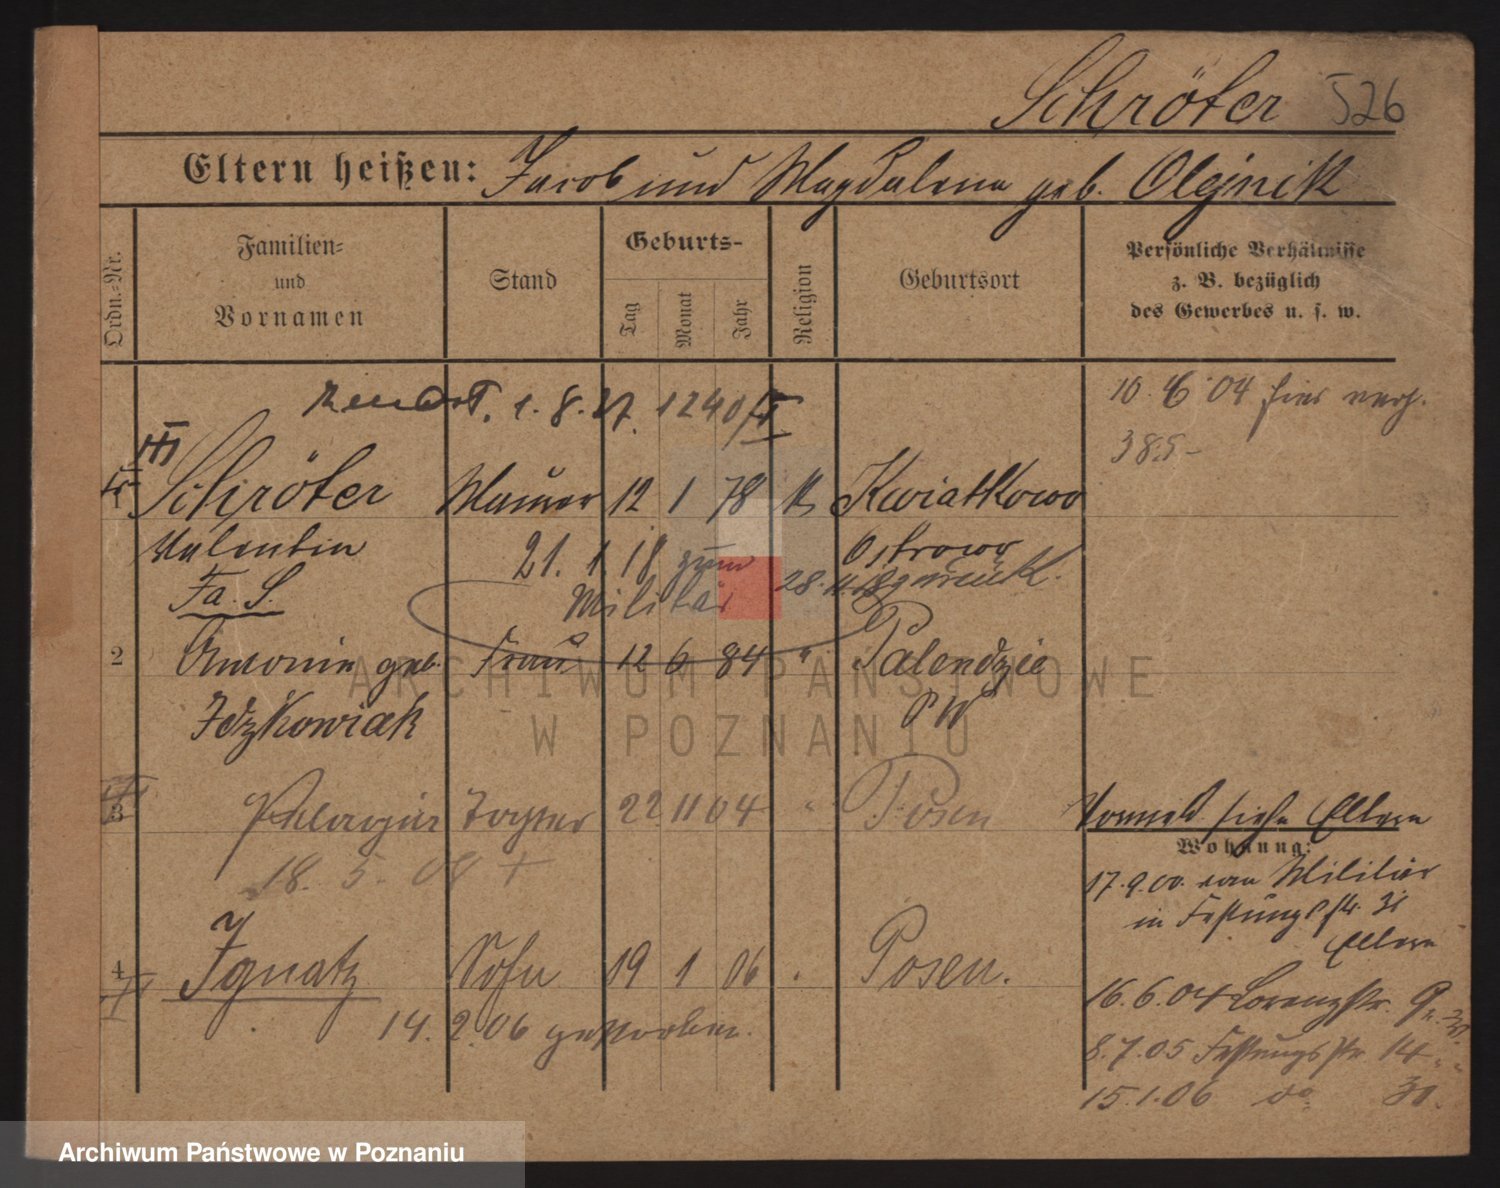 Schröter 526
Eltern heißen: Jacob und Magdalena geb. Olejnik
Ordn.-Nr.
Familien-
und
Vornamen
Stand
Geburts-
Tag
Monat
Jahr
Religion
Geburtsort
Persönliche Verhältnisse
z. B. bezüglich
des Gewerbes u. s. w.
1. 8. 27. 1240/
10. 6 04 hier verh.
385
1 Schröter Maurer 12 1 78 k Kwiatkowo
Valentin 21. 1. 18 zum Ostrowo
Fa. S. Militär 28. 11. 18 zurück.
2 Antonie geb. Frau 12 6 84 " Palendzie
Idzkowiak P W
3 Pelagia Tochter 22 11 04 " Posen
18. 5. 08 +
Vorneld siehe Eltern
Wohnung:
17. 9. 00. vom Militär
in Festungsstr. 31
Eltern
4 Ignatz Sohn 19 1 06 . Posen.
14. 2. 06 gestorben.
16. 6. 04 Lorenzstr.
8. 7. 05 Festungsstr. 14
15. 1. 06 do 31.
ARCHIWUM PAŃSTWOWE
W POZNANIU
Archiwum Państwowe w Poznaniu